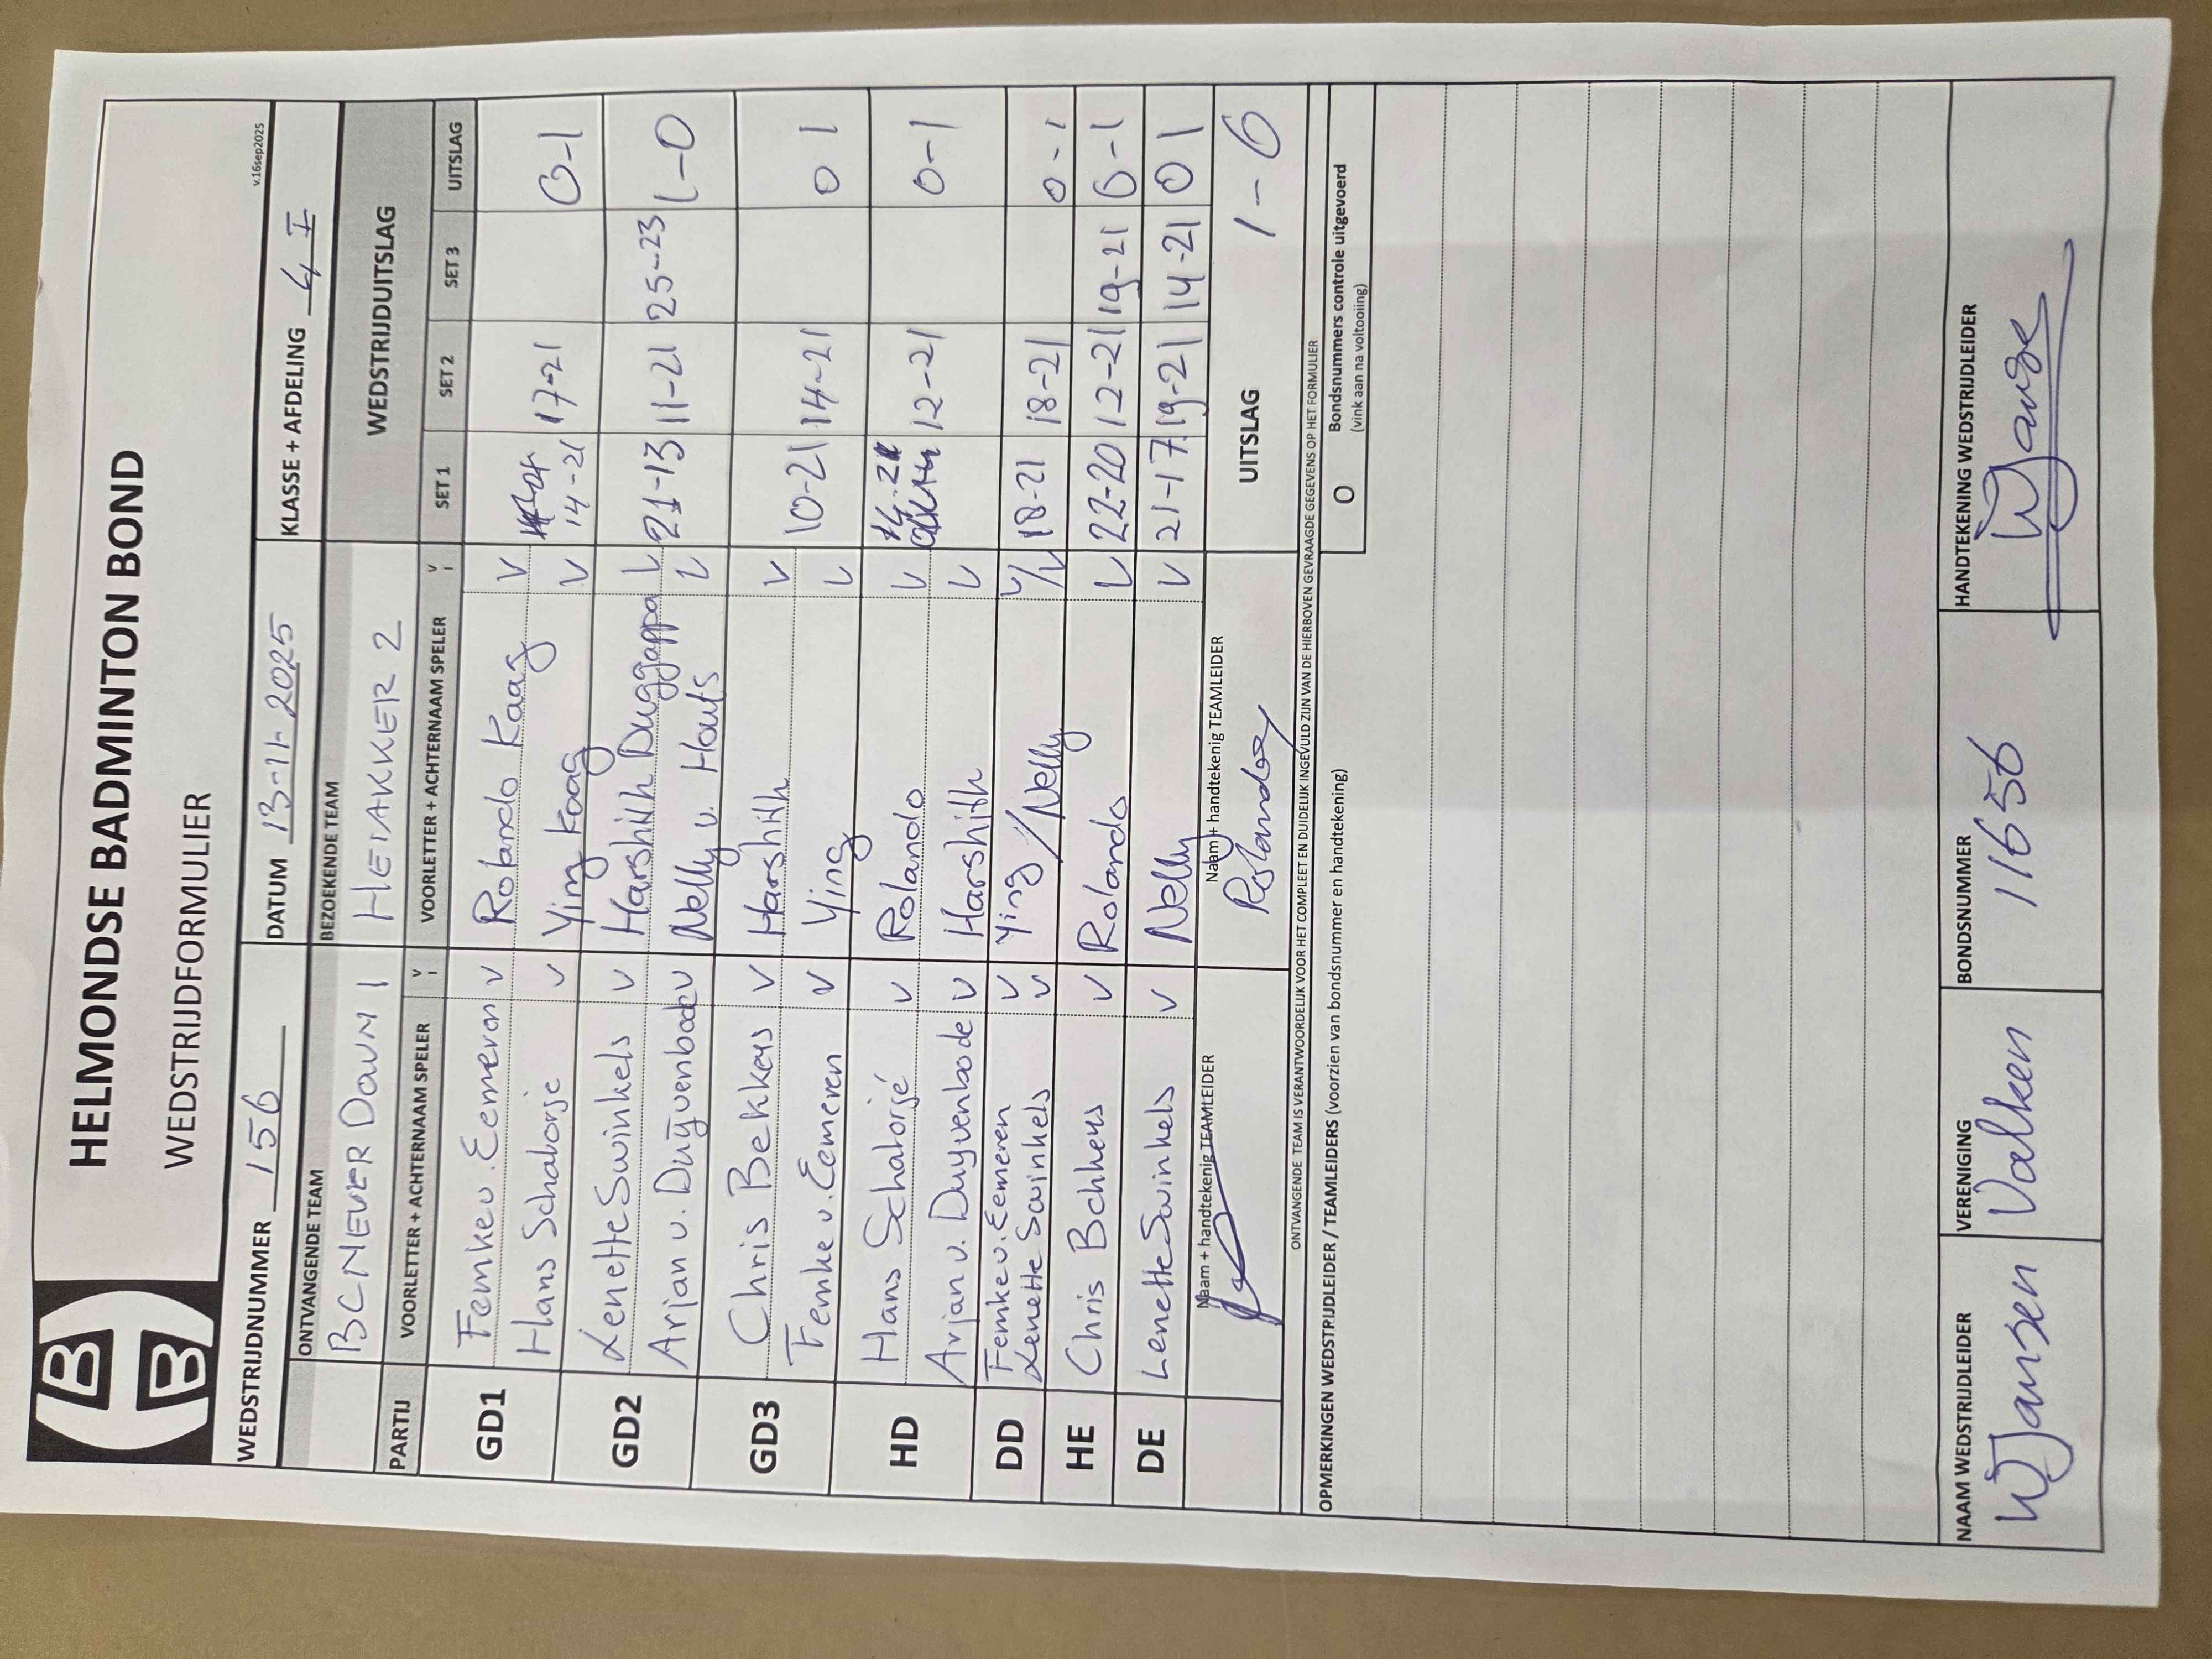 HELMONDSE BADMINTON BOND
WEDSTRIJDFORMULIER
v.16sep2025
WEDSTRIJDNUMMER 156 DATUM 13-11-2025 KLASSE + AFDELING 4 I
ONTVANGENDE TEAM BEZOEKENDE TEAM WEDSTRIJDUITSLAG
BC NEVER DOWN 1 HEIAKKER 2
PARTIJ VOORLETTER + ACHTERNAAM SPELER V I VOORLETTER + ACHTERNAAM SPELER V I SET 1 SET 2 SET 3 UITSLAG
GD1 Femke v. Eemeren V Rolando Kaag V
Hans Schatorje V Ying Kaag V 14-21 17-21 0-1
GD2 Lenette Swinkels V Harshith Duggappa V 21-13 11-21 25-23 1-0
Arjan v. Duÿvenbode V Nelly v. Houts V
GD3 Chris Bekkers V Harshith V
Femke v. Eemeren V Ying V 10-21 14-21 0 1
HD Hans Schatorjé V Rolando V
Arjan v. Duyvenbode V Harshith V 12-21 0-1
DD Femke v. Eemeren V Ying / Nelly V/V 18-21 18-21 0-1
Lenette Swinkels V
HE Chris Bekkers V Rolando V 22-20 12-21 19-21 0-1
DE Lenette Swinkels V Nelly V 21-17 19-21 14-21 0 1
Naam + handtekenig TEAMLEIDER Naam + handtekenig TEAMLEIDER UITSLAG 1-6
Rolando
ONTVANGENDE TEAM IS VERANTWOORDELIJK VOOR HET COMPLEET EN DUIDELIJK INGEVULD ZIJN VAN DE HIERBOVEN GEVRAAGDE GEGEVENS OP HET FORMULIER
OPMERKINGEN WEDSTRIJDLEIDER / TEAMLEIDERS (voorzien van bondsnummer en handtekening) O Bondsnummers controle uitgevoerd
(vink aan na voltooiing)
NAAM WEDSTRIJDLEIDER VERENIGING BONDSNUMMER HANDTEKENING WEDSTRIJDLEIDER
W Jansen Valken 11656 WJanse